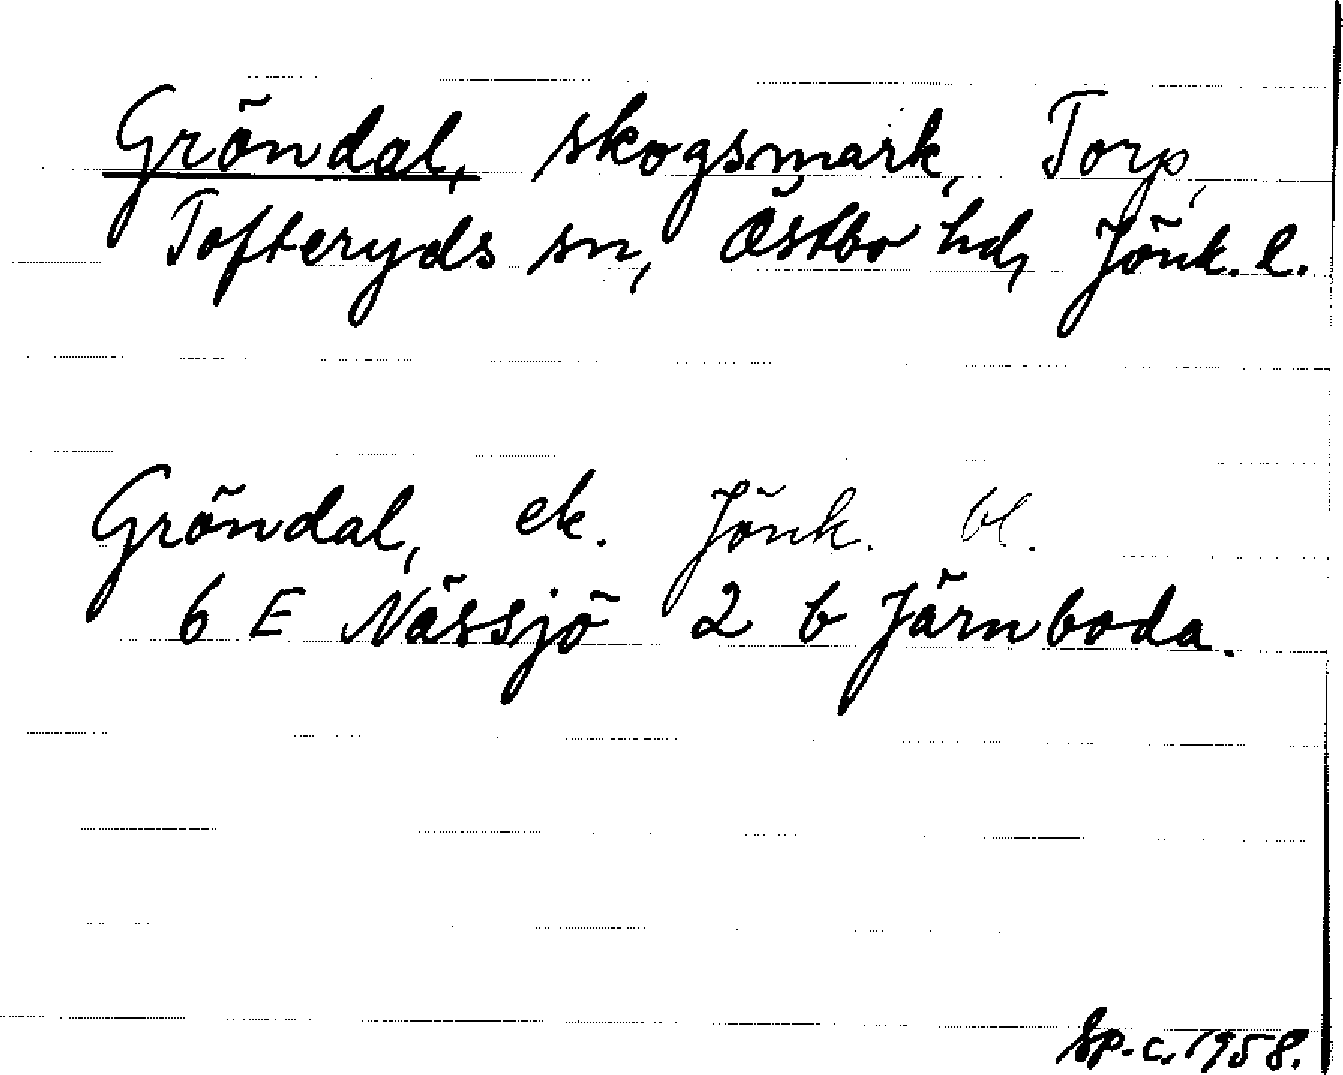 Gröndal, skogsmark, Torp,
Tofteryds sn, Östbo hd, Jönk. l.
Gröndal, ek. Jönk. bl.
6 E Nässjö 2 b Järnboda.
Sp.c. 1958.